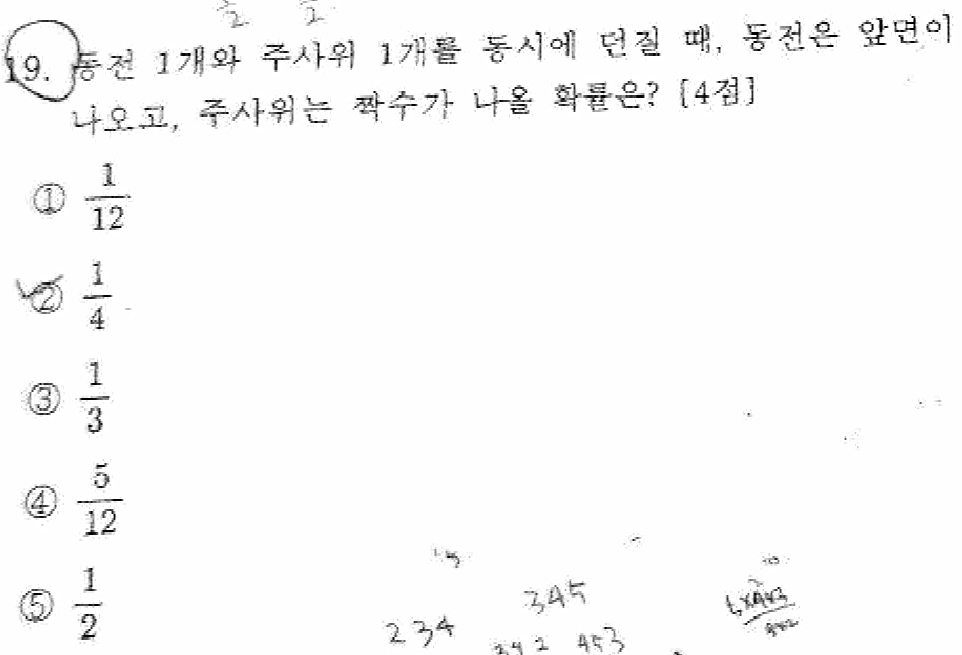 2 2
19. 동전 1개와 주사위 1개를 동시에 던질 때, 동전은 앞면이
나오고, 주사위는 짝수가 나올 확률은? [4점]
① 1/12
② 1/4
③ 1/3
④ 5/12
⑤ 1/2
345
234
342 453